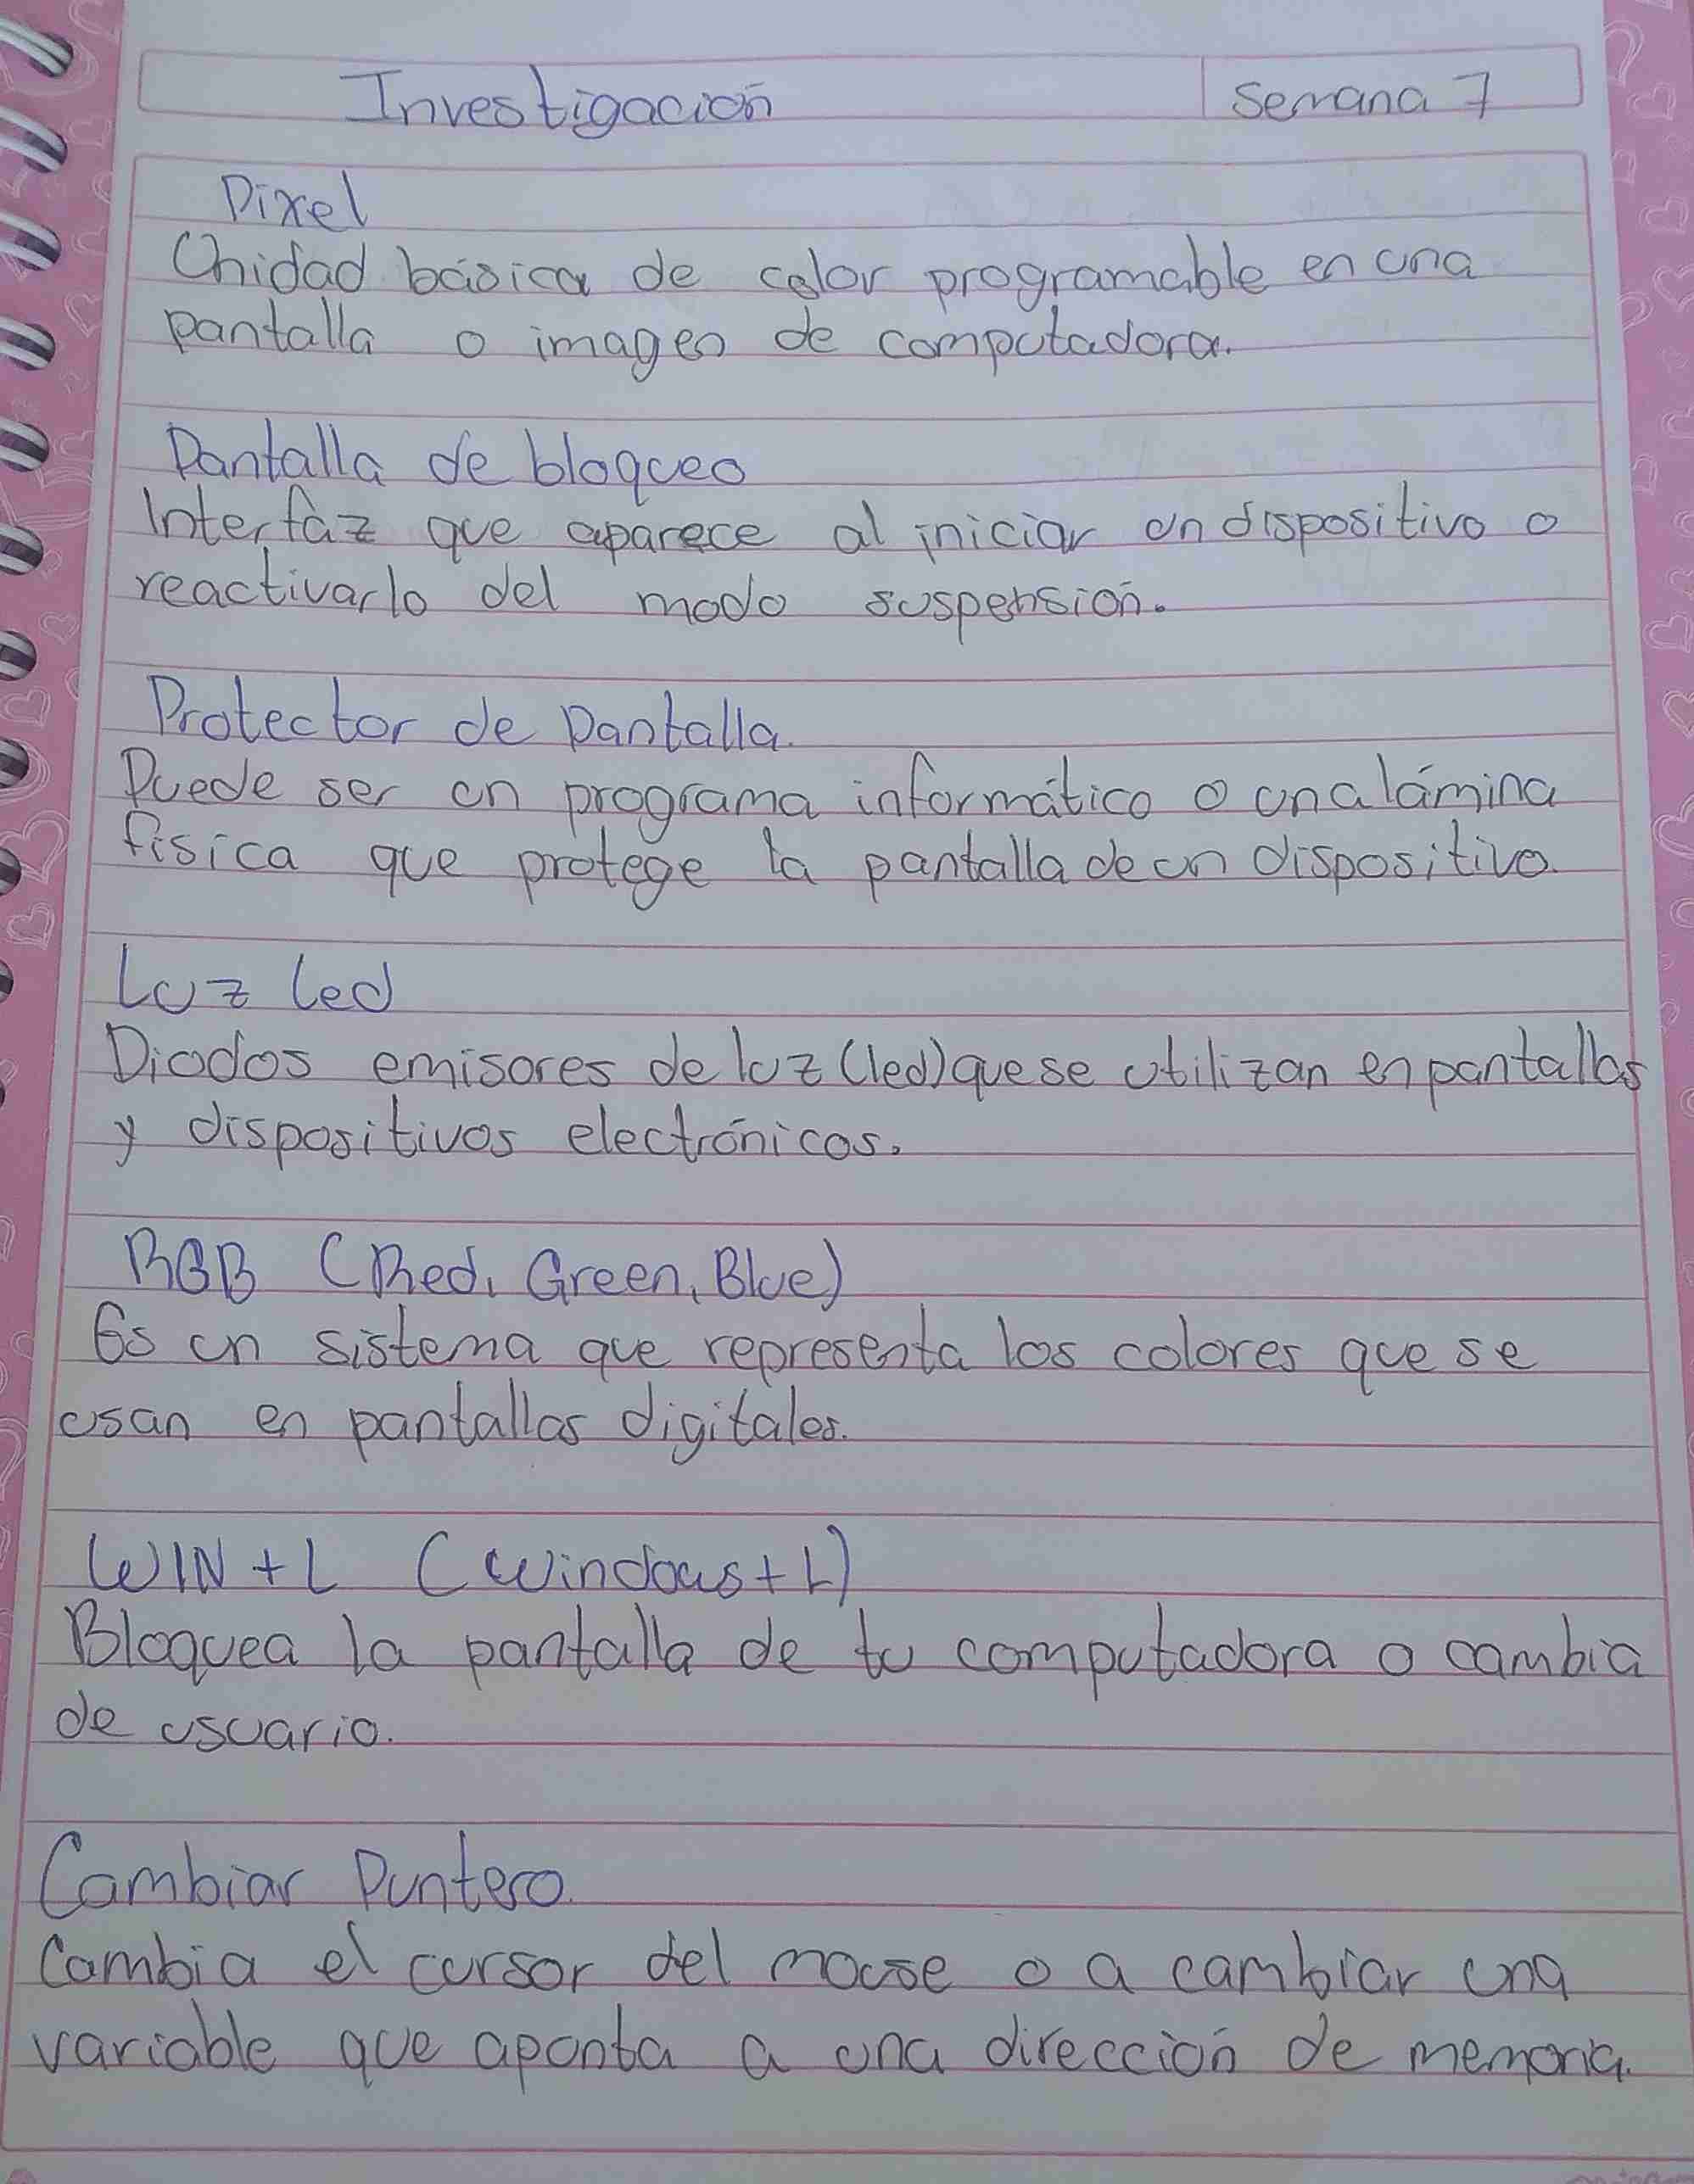 Investigación
Semana 7
Pixel
Unidad básica de color programable en una
pantalla o imagen de computadora.
Pantalla de bloqueo
Interfaz que aparece al iniciar un dispositivo o
reactivarlo del modo suspensión.
Protector de Pantalla.
Puede ser un programa informático o una lámina
física que protege la pantalla de un dispositivo.
Luz led
Diodos emisores de luz (led) que se utilizan en pantallas
y dispositivos electrónicos.
RGB (Red, Green, Blue)
Es un sistema que representa los colores que se
usan en pantallas digitales.
WIN + L (Windows + L)
Bloquea la pantalla de tu computadora o cambia
de usuario.
Cambiar Puntero.
Cambia el cursor del mouse o a cambiar una
variable que apunta a una dirección de memoria.